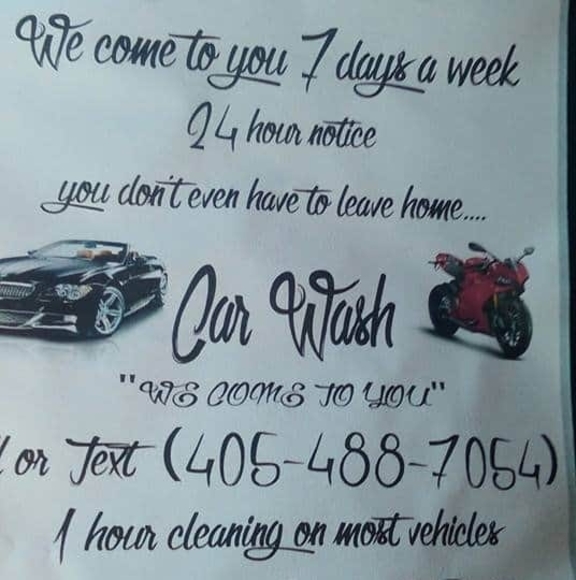 We come to you 7 days a week
24 hour notice
you don't even have to leave home....
Car Wash
"WE COME TO YOU"
or Text (405-488-7054)
1 hour cleaning on most vehicles